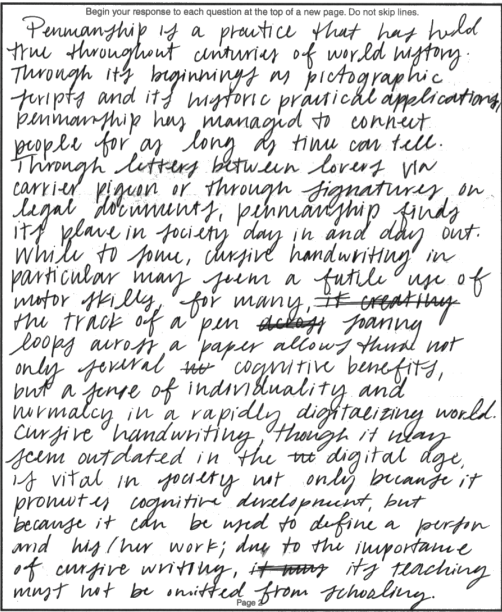 Begin your response to each question at the top of a new page. Do not skip lines.
Penmanship is a practice that has held
true throughout centuries of world history.
Through its beginnings as pictographic
scripts and its historic practical applications,
penmanship has managed to connect
people for as long as time can tell.
Through letters between lovers via
carrier pigeon or through signatures on
legal documents, penmanship finds
its place in society day in and day out.
While to some, cursive handwriting in
particular may seem a futile use of
motor skills, for many, it creating
the track of a pen across soaring
loops across a paper allows them not
only several cognitive benefits,
but a sense of individuality and
normalcy in a rapidly digitalizing world.
Cursive handwriting, though it may
seem outdated in the digital age,
is vital in society not only because it
promotes cognitive development, but
because it can be used to define a person
and his/her work; due to the importance
of cursive writing, it must its teaching
must not be omitted from schooling.
Page 2